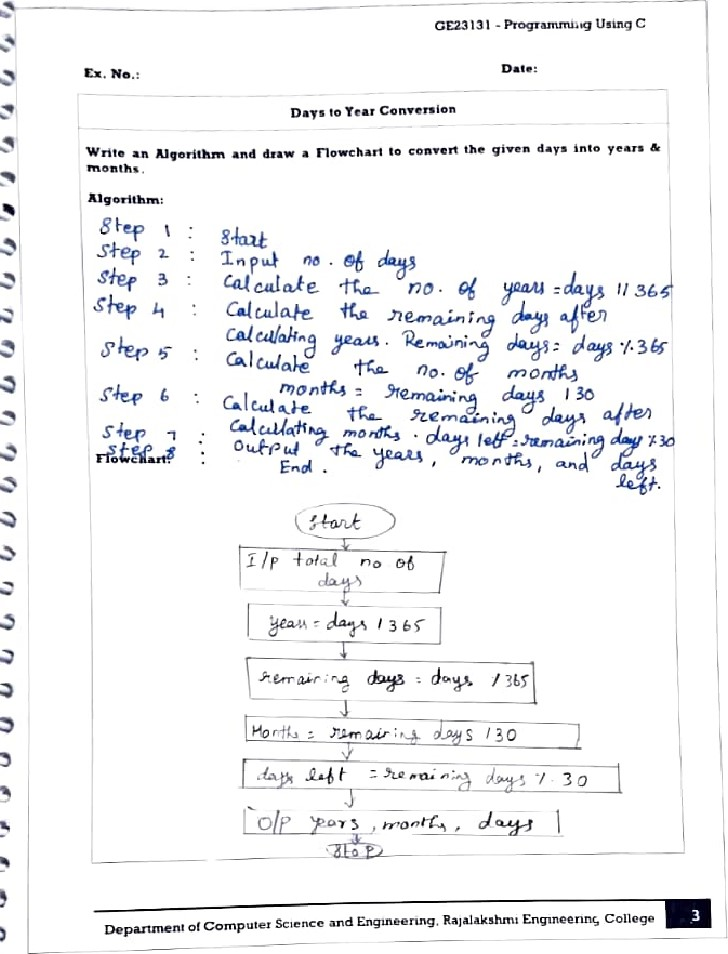 GE23131 - Programming Using C
Ex. No.: Date:
Days to Year Conversion
Write an Algorithm and draw a Flowchart to convert the given days into years &
months.
Algorithm:
Step 1 : Start
Step 2 : Input no. of days
Step 3 : Calculate the no. of years = days // 365
Step 4 : Calculate the remaining days after
calculating years. Remaining days = days % 365
Step 5 : Calculate the no. of months
months = remaining days / 30
Step 6 : Calculate the remaining days after
calculating months. days left = remaining days % 30
Step 7 : Output the years, months, and days
left.
Step 8 : End.
Flowchart:
Start
I/P total no of
days
years = days / 365
remaining days = days % 365
Months = remaining days / 30
days left = remaining days % 30
O/P years, months, days
Stop
Department of Computer Science and Engineering, Rajalakshmi Engineering College 3